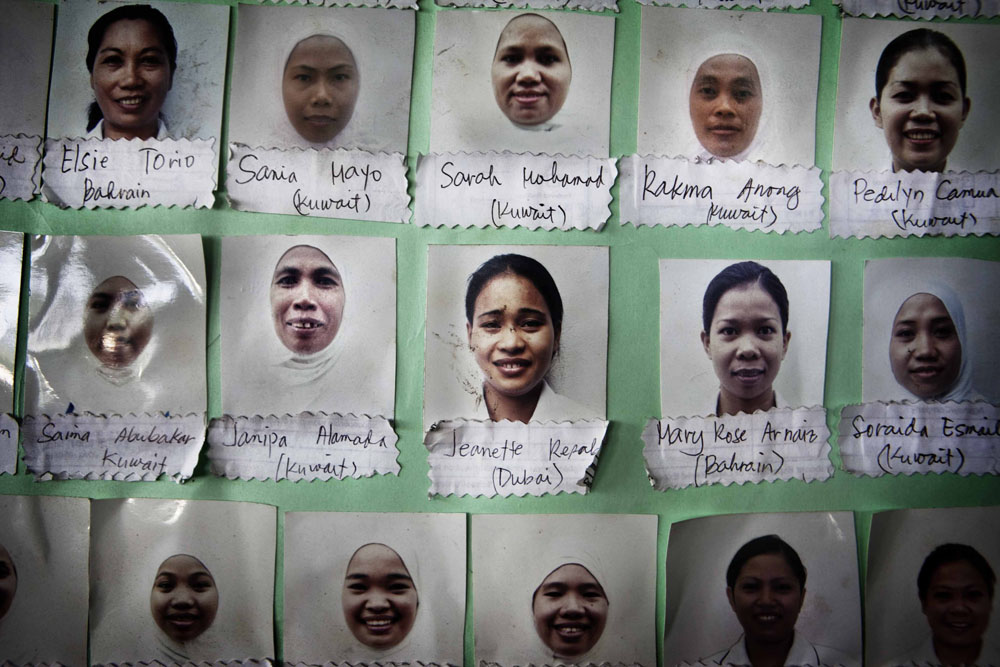 (Kuwait)
Elsie Torio
Bahrain
Sania Mayo
(Kuwait)
Sarah Mohamad
(Kuwait)
Rakma Anong
(Kuwait)
Pedilyn Camua
(Kuwait)
Saima Abubakar
Kuwait
Janipa Alamada
(Kuwait)
Jeanette Repal
(Dubai)
Mary Rose Arnaiz
(Bahrain)
Soraida Esmail
(Kuwait)